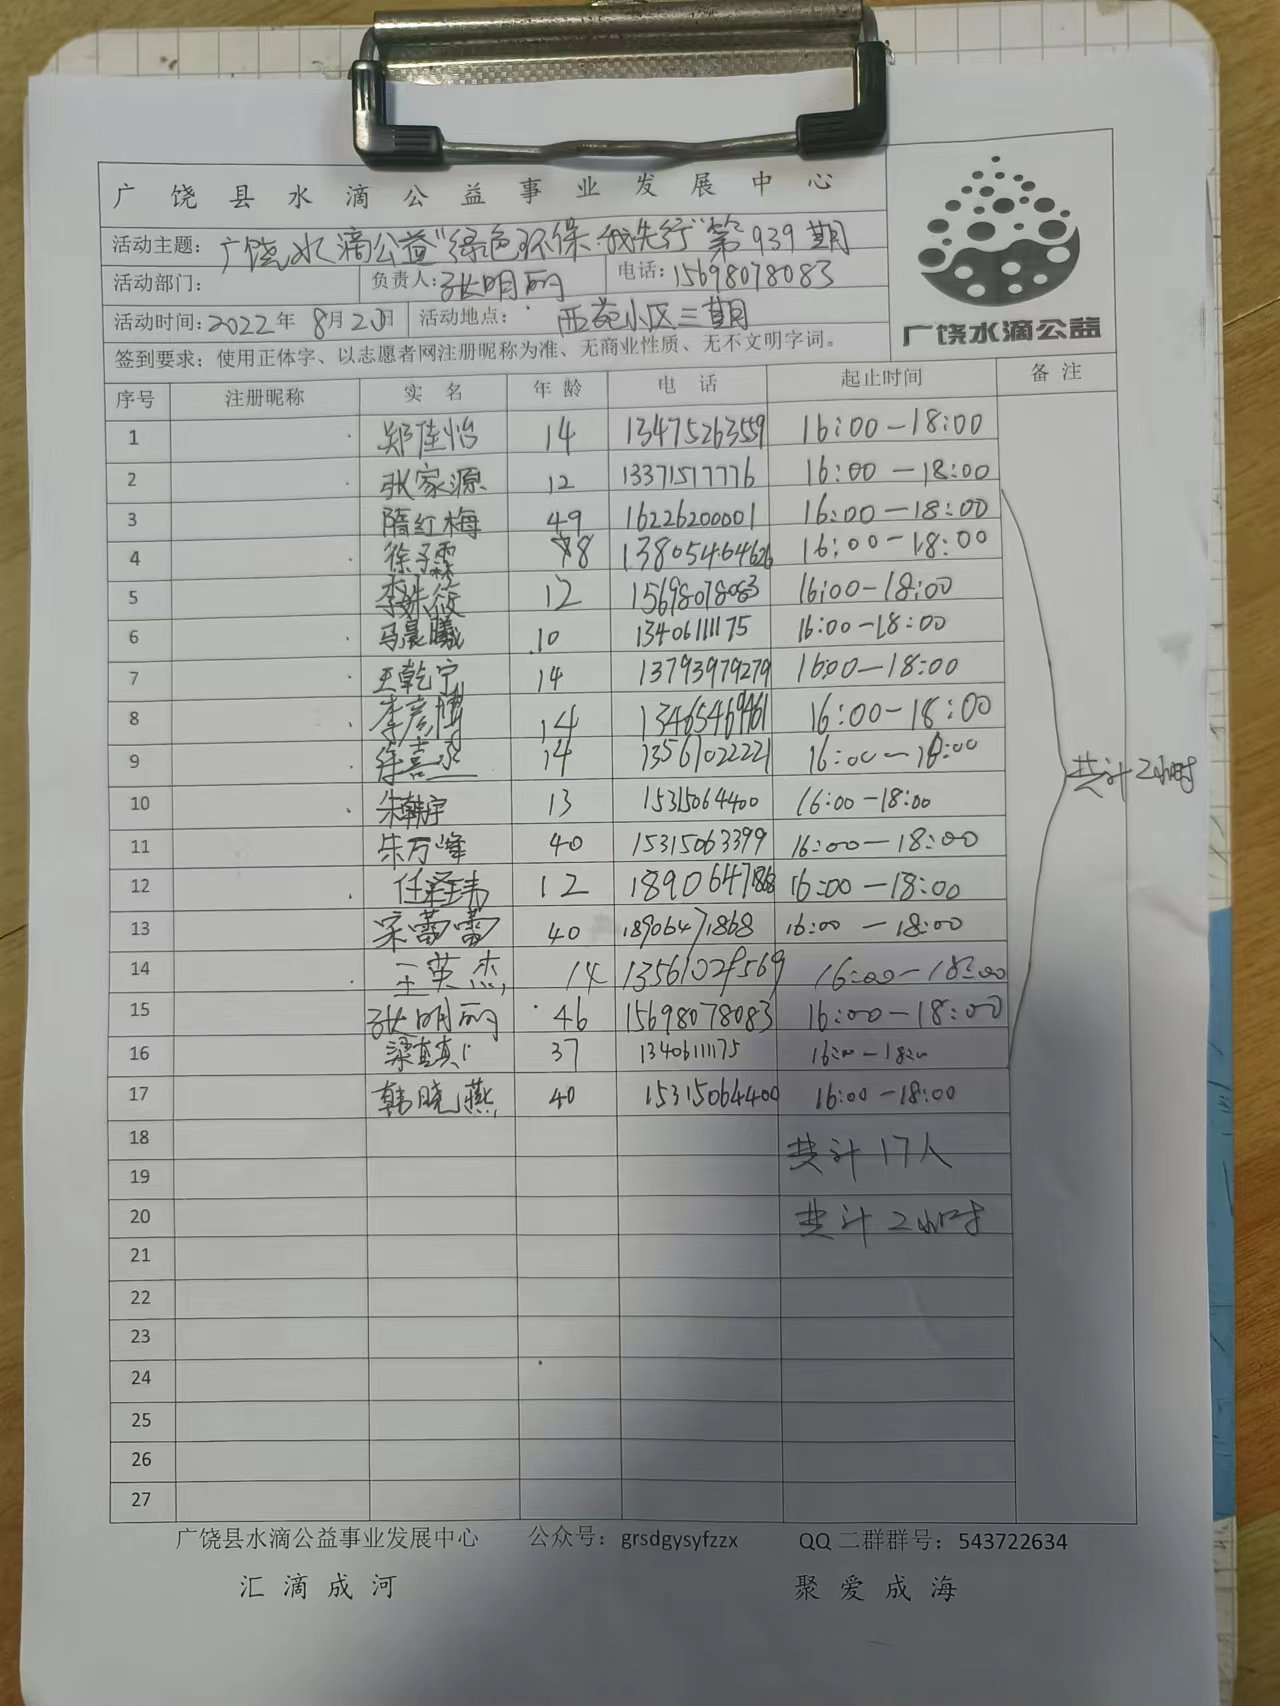 广饶县水滴公益事业发展中心
活动主题：广饶水滴公益"绿色环保 我先行"第939期
活动部门： 负责人：张明丽 电话：15698078083
活动时间：2022年8月20日 活动地点：西苑小区三期
广饶水滴公益
签到要求：使用正体字、以志愿者网注册昵称为准、无商业性质、无不文明字词。
序号 注册昵称 实名 年龄 电话 起止时间 备注
1 郑佳怡 14 13475263559 16:00-18:00
2 张家源 12 13371517776 16:00-18:00
3 隋红梅 49 16226200001 16:00-18:00
4 徐子霖 8 13805464626 16:00-18:00
5 李姝筱 12 15698078083 16:00-18:00
6 马晨曦 10 13406111175 16:00-18:00
7 王乾宁 14 13793979279 16:00-18:00
8 李彦博 14 13465469461 16:00-18:00
9 徐熹 14 13561022221 16:00-18:00
共计2小时
10 朱韩宇 13 15315064400 16:00-18:00
11 朱万峰 40 15315063399 16:00-18:00
12 任泽玮 12 18906471868 16:00-18:00
13 宋蕾蕾 40 18906471868 16:00-18:00
14 王英杰 14 13561029569 16:00-18:00
15 张明丽 46 15698078083 16:00-18:00
16 梁真真 37 13406111175 16:00-18:00
17 韩晓燕 40 15315064400 16:00-18:00
18 共计17人
19
20 共计2小时
21
22
23
24
25
26
27
广饶县水滴公益事业发展中心 公众号：grsdgysyfzzx QQ二群群号：543722634
汇滴成河 聚爱成海